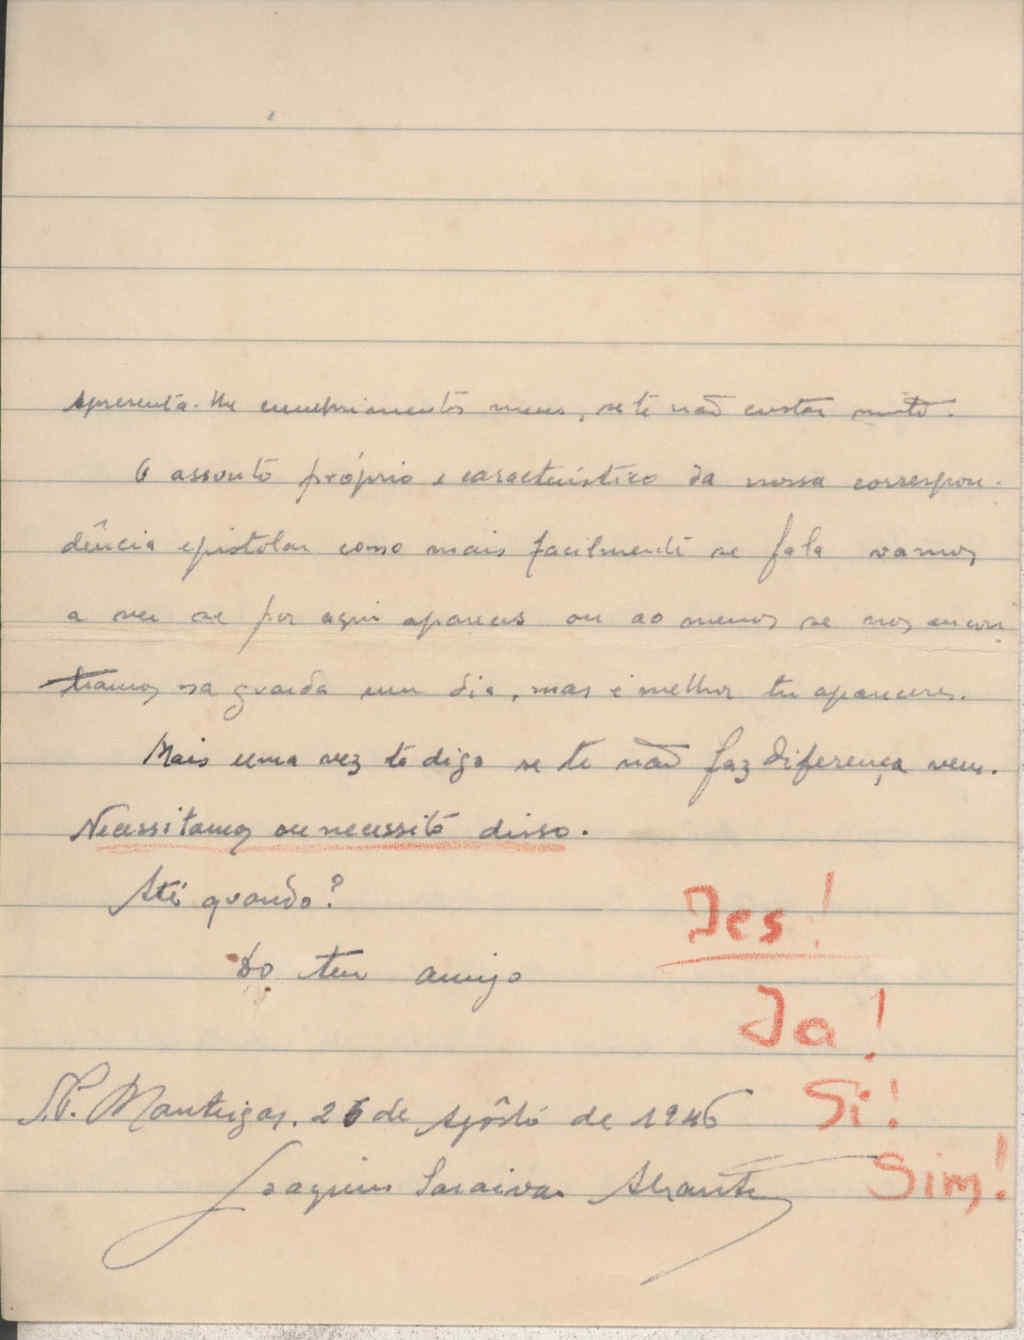 Apresenta-lhe cumprimentos meus, se te não custar muito.
O assunto próprio e característico da nossa correspon-
dência epistolar como mais facilmente se fala vamos
a ver se por aqui apareces ou ao menos se nos encon
tramos na guarda um dia, mas é melhor tu apareceres.
Mais uma vez te digo se te não faz diferença vem.
Necessitamos ou necessito disso.
Até quando?
Yes!
Do teu amigo
Ja!
Manteigas, 26 de Agôsto de 1946
Si!
Joaquim Saraiva
Sim!